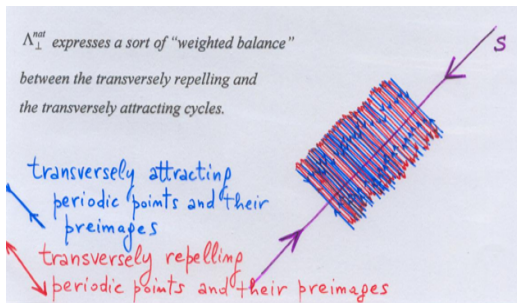 Λ⊥^nat expresses a sort of “weighted balance”
between the transversely repelling and
the transversely attracting cycles.
S
transversely attracting
periodic points and their
preimages
transversely repelling
periodic points and their preimages